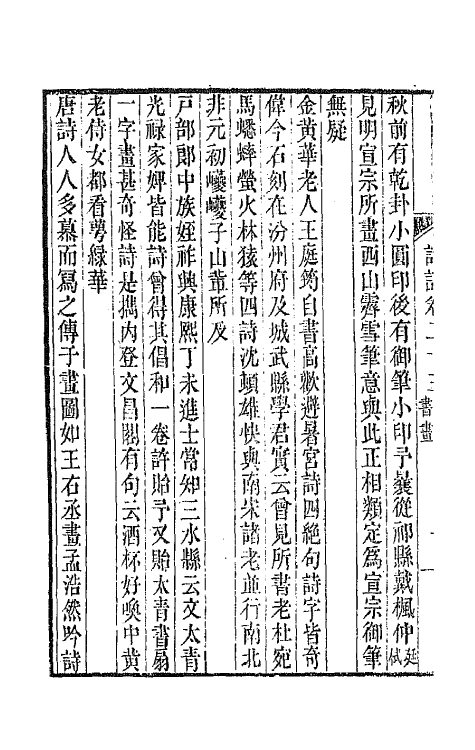 秋前有乾卦小圓印後有御筆小印予曩從祁縣戴楓仲廷栻
見明宣宗所畫西山霽雪筆意與此正相類定為宣宗御筆
無疑
金黃華老人王庭筠自書高歡避暑宮詩四絶句詩字皆奇
偉今石刻在汾州府及城武縣學君實云曾見所書老杜宛
馬蟠蟀螢火林猿等四詩沈頓雄快與南宋諸老並行南北
非元初巙巙子山輩所及
戸部郎中族姪祚與康熙丁未進士常知三水縣云文太青
光祿家婢皆能詩曾得其倡和一卷許貽予又貽太青書扇
一字畫甚奇怪詩是攜内登文昌閣有句云酒杯好喚中黃
老侍女都看萼緑華
唐詩人人多慕而寫之傳于畫圖如王右丞畫孟浩然吟詩
詩話卷二十三書畫